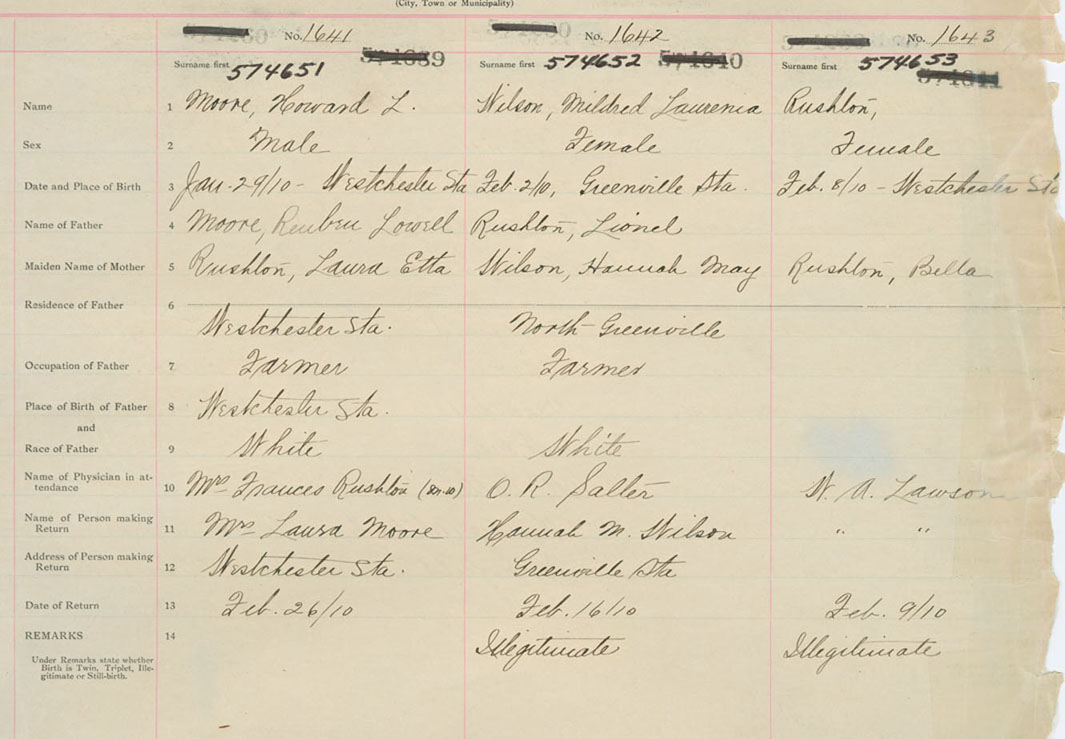 (City, Town or Municipality)
No. 1641 No. 1642 No. 1643
Surname first 574651 Surname first 574652 Surname first 574653
Name 1 Moore, Howard L. Wilson, Mildred Laurenia Rushton,
Sex 2 Male Female Female
Date and Place of Birth 3 Jan. 29/10 - Westchester Sta Feb. 2/10, Greenville Sta. Feb. 8/10 - Westchester Sta
Name of Father 4 Moore, Reuben Lowell Rushton, Lionel
Maiden Name of Mother 5 Rushton, Laura Etta Wilson, Hannah May Rushton, Bella
Residence of Father 6 Westchester Sta. North Greenville
Occupation of Father 7 Farmer Farmer
Place of Birth of Father 8 Westchester Sta.
and
Race of Father 9 White White
Name of Physician in at-
tendance 10 Mrs Frances Rushton O. R. Salter W. A. Lawson
Name of Person making
Return 11 Mrs Laura Moore Hannah M. Wilson " "
Address of Person making
Return 12 Westchester Sta. Greenville Sta
Date of Return 13 Feb. 26/10 Feb. 16/10 Feb. 9/10
REMARKS 14 Illegitimate Illegitimate
Under Remarks state whether
Birth is Twin, Triplet, Ille-
gitimate or Still-birth.